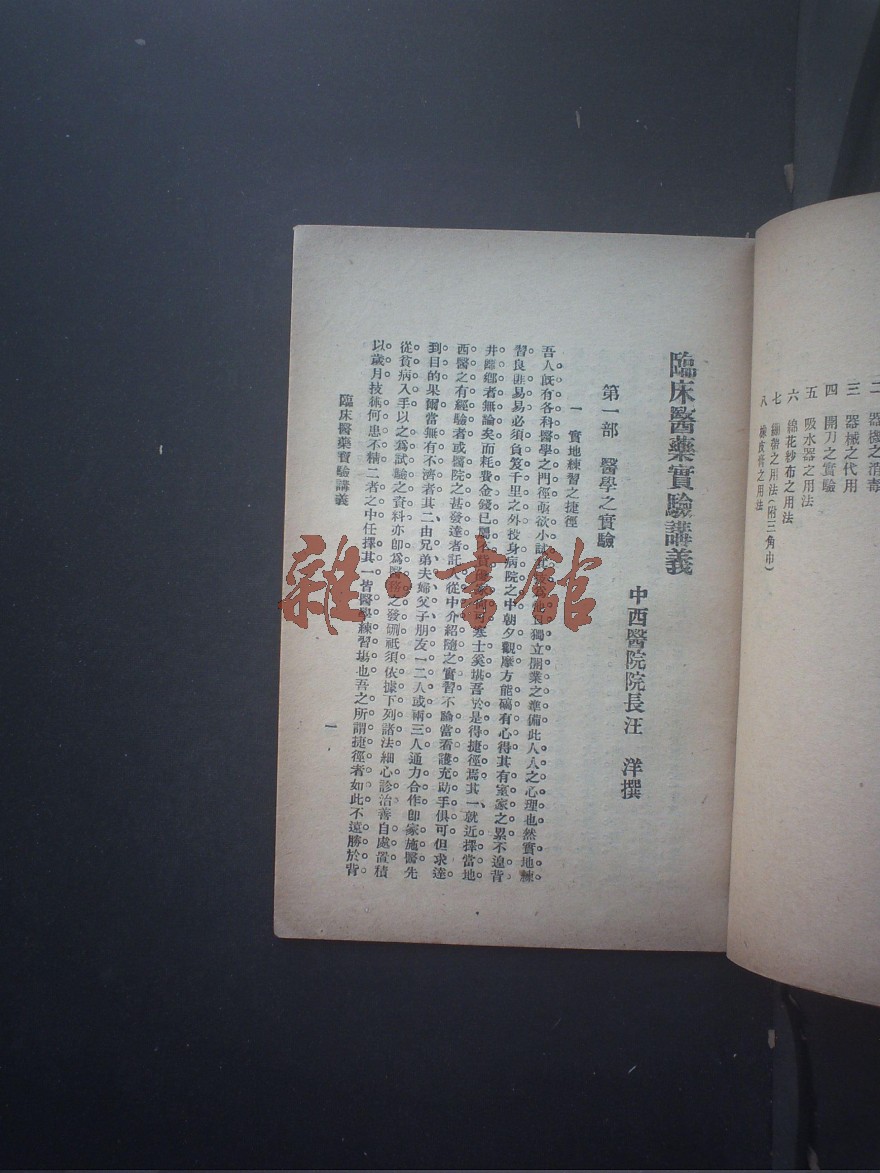 二 器械之消毒
三 器械之代用
四 開刀之實驗
五 吸水器之用法
六 錦花紗布之用法
七 繃帶之用法(附三角巾)
八 橡皮膏之用法
臨床醫藥實驗講義
中西醫院院長汪 洋撰
第一部 醫學之實驗
一 實地練習之捷徑
吾人既有各科醫學之門徑亟欲小試 獨立開業之準備此人人之心理也然實地練
習良匪易易必須負笈千里之外投身病院之中朝夕觀摩方能礭有心得其有室家之累不遑背
井離鄉者無論矣而耗費金錢已屬 寒士奚堪吾於是得捷徑焉其一、就近擇當地
西醫之有經驗者或醫院之甚發達者託人從中介紹隨之實習不論當看護充助手俱可但求達
到目的果爾當無有不濟者其二、由兄弟夫婦父子朋友一二人或兩三人通力合作卽家施醫先
從貧病入手以之爲試驗之資料亦卽爲醫務之發硎祇須依據下列諸法細心診治善自處置積
以歲月技藝何患不精二者之中任擇其一皆醫學練習塲也吾之所謂捷徑者如此不遠勝於背
臨床醫藥實驗講義
一
雜·書館